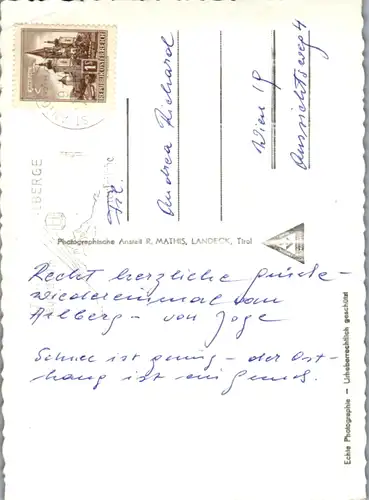 REPUBLIK ÖSTERREICH
Frl.
Andrea Richard
Wien 19
Aussichtsweg 4
Photographische Anstalt R. MATHIS, LANDECK, Tirol
Recht herzliche Grüße –
wiedereinmal vom
Arlberg – von
Schnee ist genug – der Ost-
hang ist ein
Echte Photographie – Urheberrechtlich geschützt